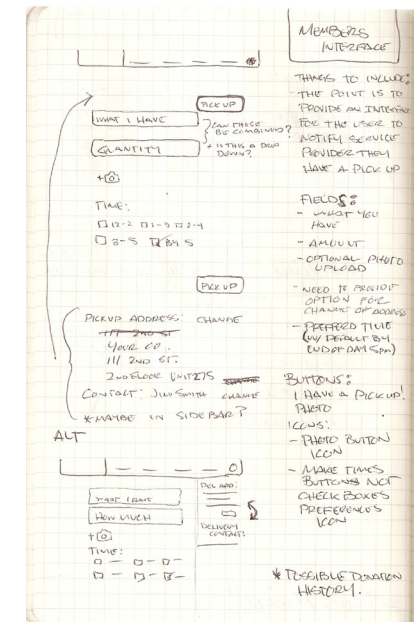 MEMBERS
INTERFACE
PICK UP
WHAT I HAVE
QUANTITY
CAN THESE
BE COMBINED?
* IS THIS A DROP
DOWN?
+
TIME:
12-2 1-3 2-4
3-5 BY 5
PICK UP
PICKUP ADDRESS: CHANGE
YOUR CO.
111 2ND ST.
2ND FLOOR UNIT 275
CONTACT: JIM SMITH CHANGE
*MAYBE IN SIDEBAR?
ALT
WHAT I HAVE
HOW MUCH
+
TIME:
DEL ADD:
DELIVERY
CONTACT:
THINGS TO INCLUDE:
- THE POINT IS TO
PROVIDE AN INTERFACE
FOR THE USER TO
NOTIFY SERVICE
PROVIDER THEY
HAVE A PICK UP
FIELDS:
- WHAT YOU
HAVE
- AMOUNT
- OPTIONAL PHOTO
UPLOAD
- NEED TO PROVIDE
OPTION FOR
CHANGE OF ADDRESS
- PREFERED TIME
(W/ DEFAULT BY
END OF DAY 5PM)
BUTTONS:
I HAVE A PICKUP!
PHOTO
ICONS:
- PHOTO BUTTON
ICON
- MAKE TIMES
BUTTONS NOT
CHECK BOXES
PREFERENCES
ICON
* POSSIBLE DONATION
HISTORY.